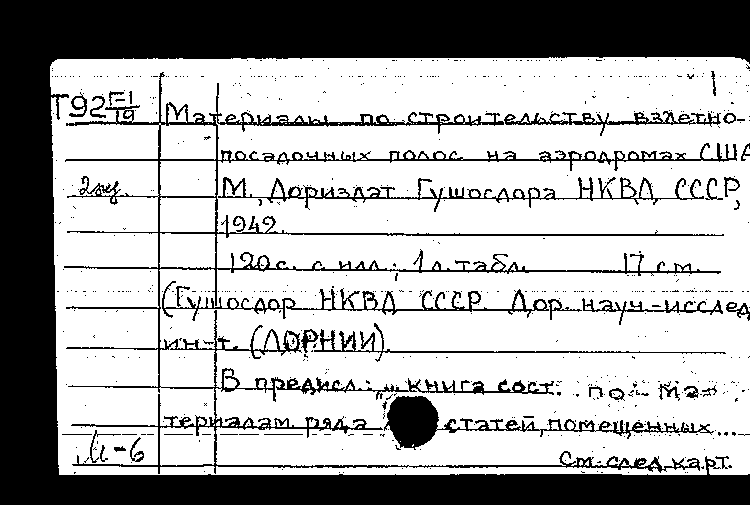 Т92 Г-1/19 Материалы по строительству взлетно-
посадочных полос на аэродромах США
2 экз. М., Дориздат Гушосдора НКВД СССР,
1942.
120 с. с илл.; 1 л. табл. 17 см.
(Гушосдор НКВД СССР. Дор. науч.-исслед
ин-т. (ДОРНИИ).
В предисл.: „... книга сост. по ма-
териалам ряда статей, помещенных...
М-6 См. след. карт.